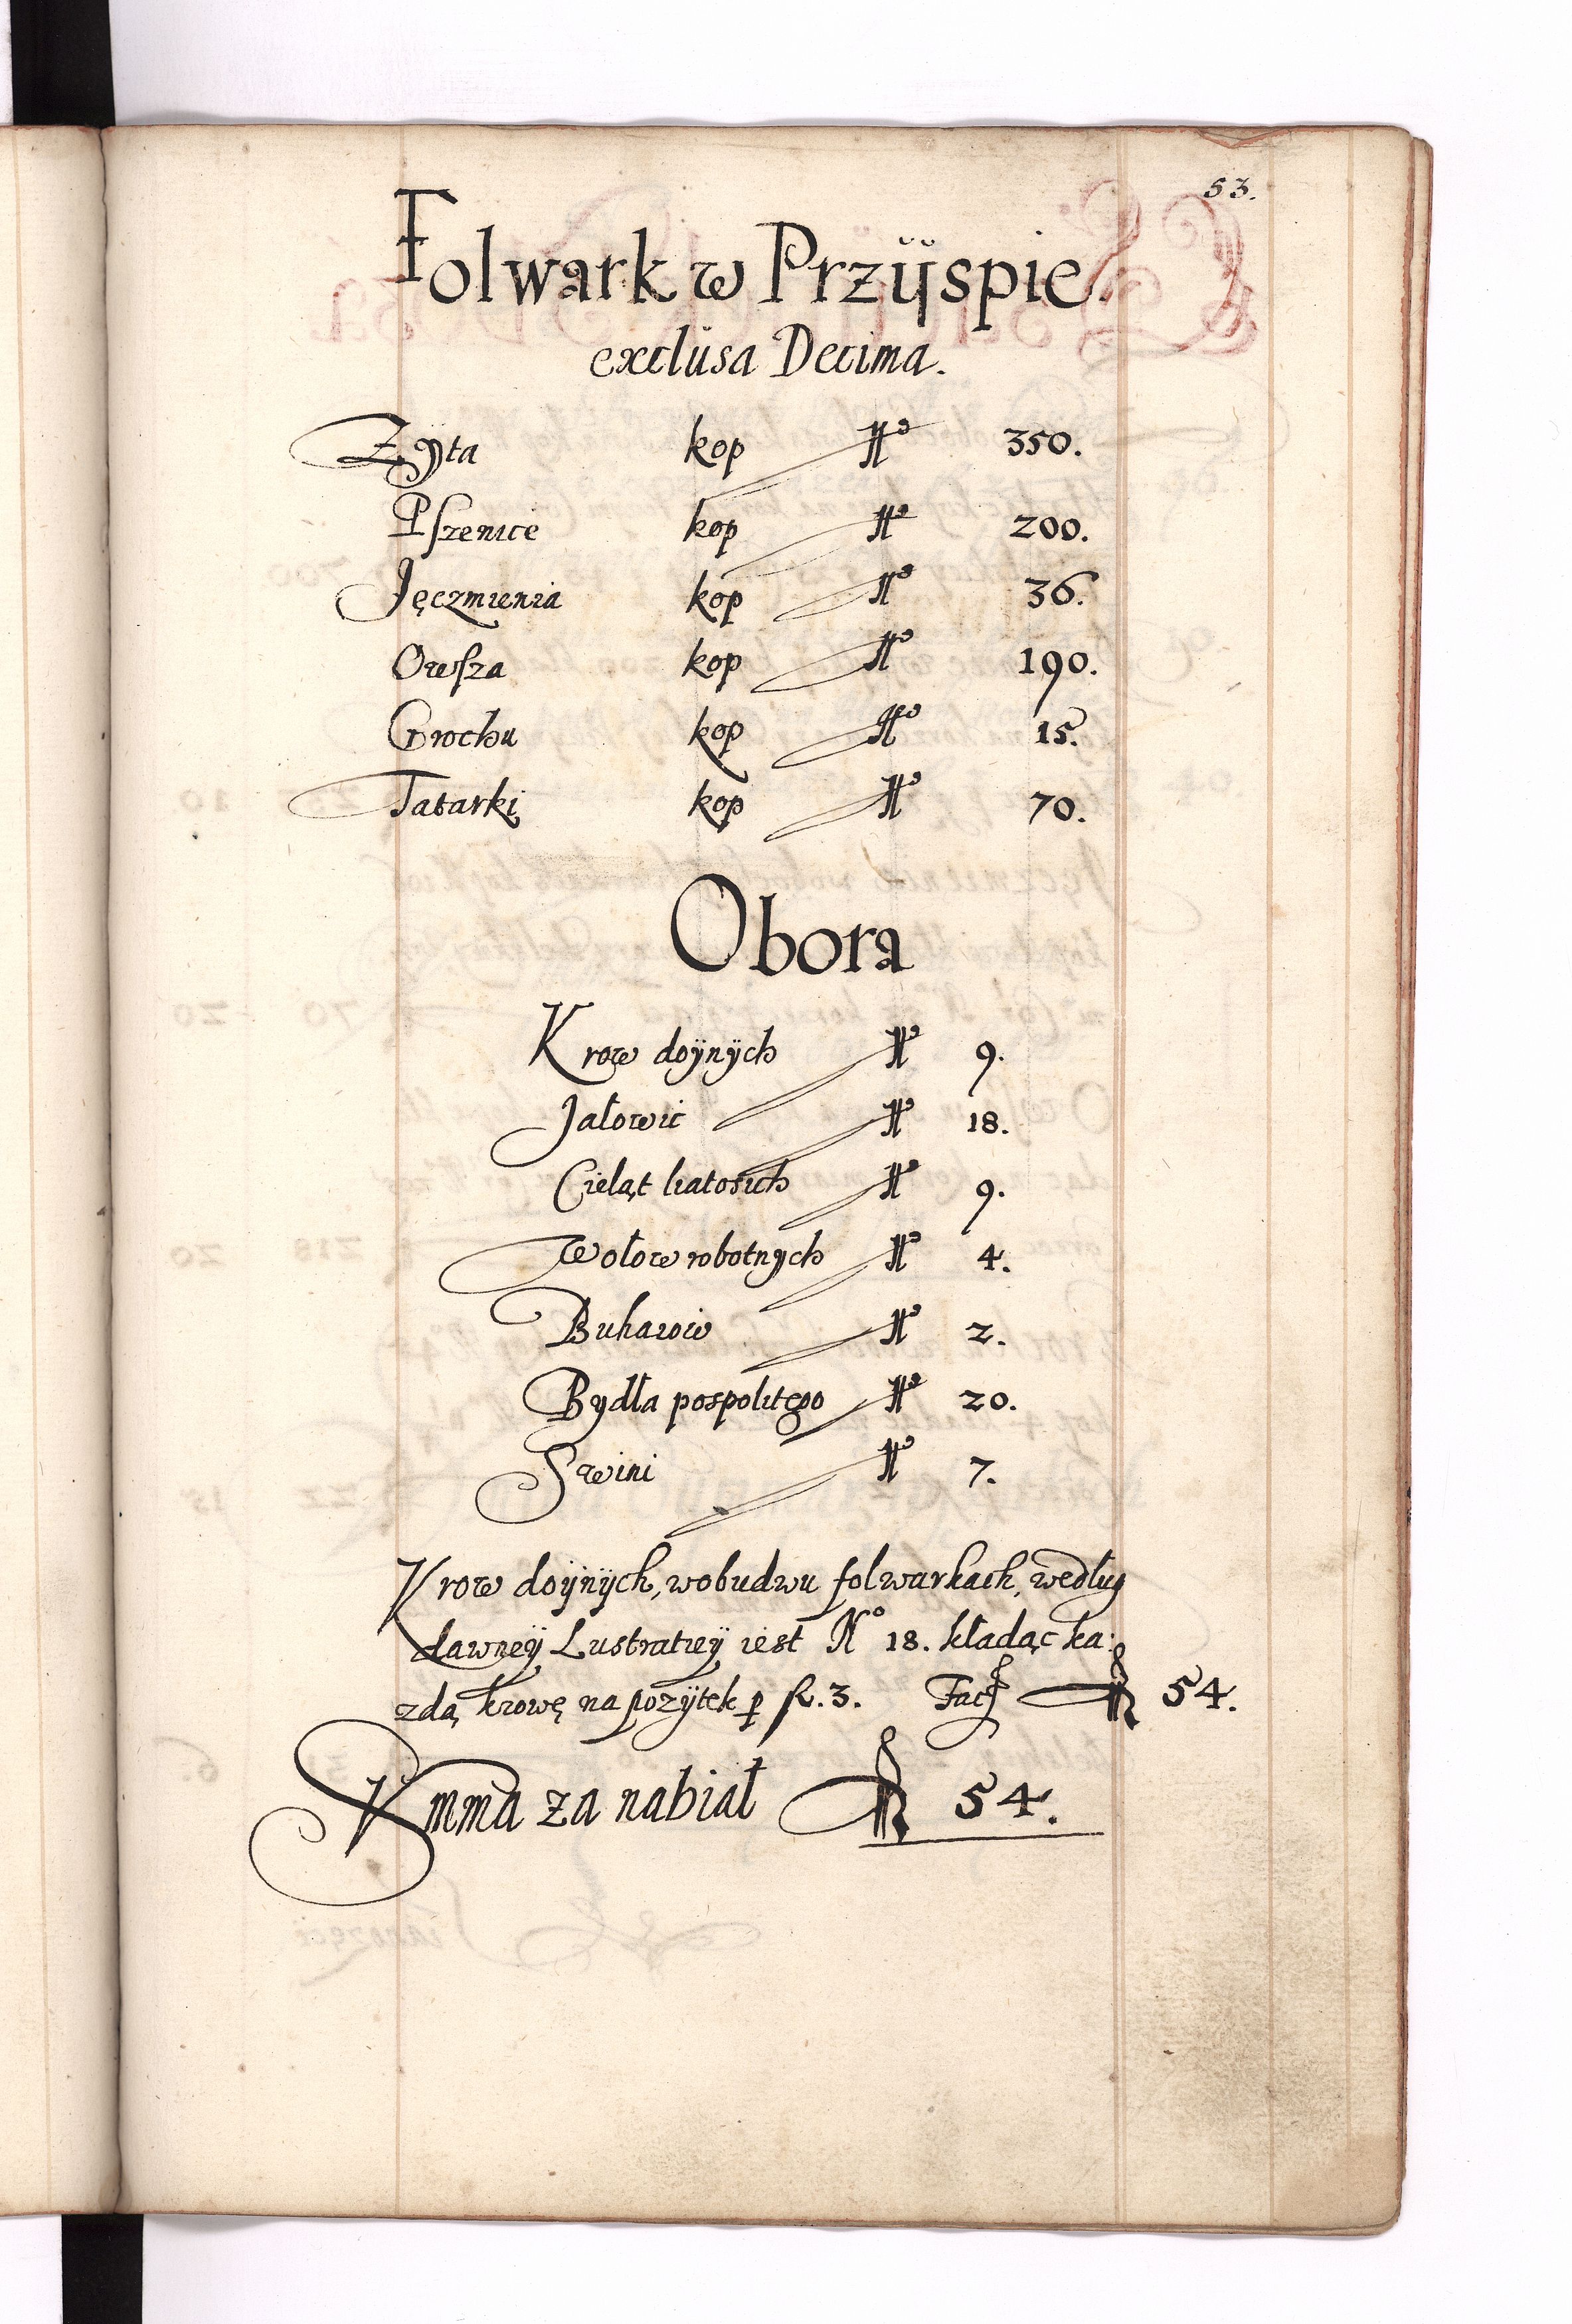 53.
Folwark w Przÿspie.
exclusa Decima.
Zÿta kop Nº 350.
Pszenice kop Nº 200.
Jęczmienia kop Nº 36.
Owsza kop Nº 190.
Grochu kop Nº 15.
Tatarki kop Nº 70.
Obora
Krow doÿnÿch Nº 9.
Jałowic Nº 18.
Cieląt liatosich Nº 9.
Wołow robotnych Nº 4.
Buhaiow Nº 2.
Bydła pospolitego Nº 20.
Swini Nº 7.
Krow doÿnÿch, wobudwu folwarkach, według
dawneÿ Lustratieÿ iest Nº 18. kładąc ka:
zdą krowę na pozÿtek p fl. 3. Facit fl 54.
Summa za nabiał fl 54.